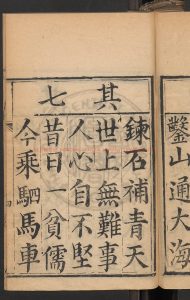 鑿山通大海
鍊石補青天
世上無難事
人心自不堅
其七
昔日一貧儒
今乘駟馬車